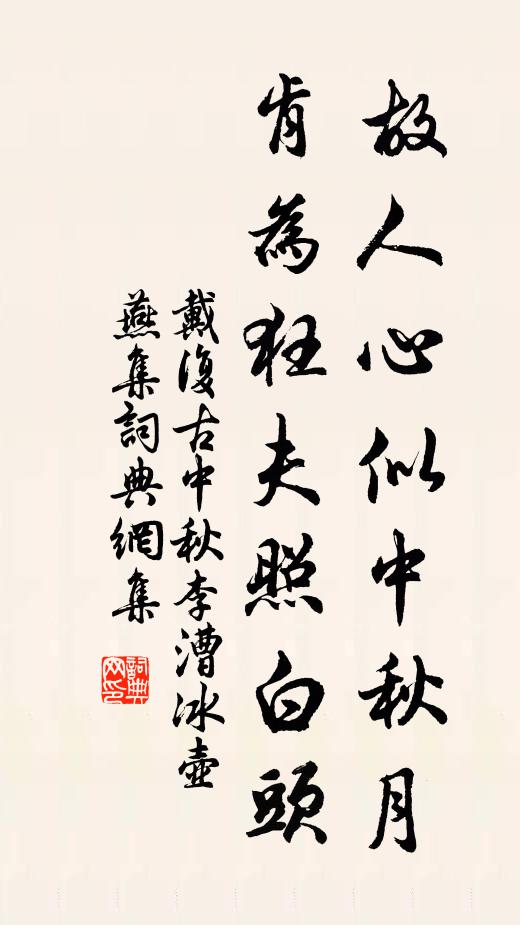 故人心似中秋月
肯為狂夫照白頭
戴復古中秋李漕冰壺
燕集詞典網集
詞典網印